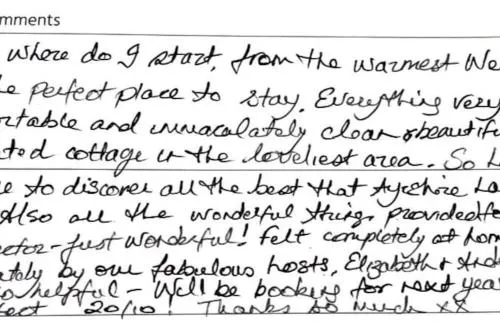 mments
where do I start, from the warmest We
e perfect place to stay. Everything very
rtable and immaculately clean & beautif
ted cottage in the loveliest area. So l
e to discover all the best that Ayrshire ha
Also all the wonderful things provided fo
ector - just wonderful! felt completely at hom
ately by our fabulous hosts, Elizabeth &
o helpful - Will be booking for next year
fect 20/10! Thanks so much xx